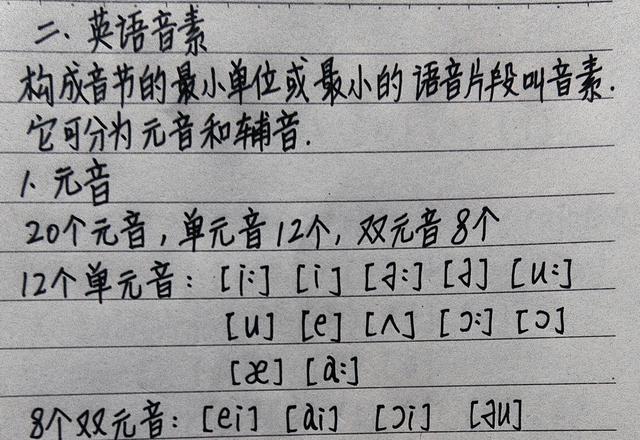 二、英语音素
构成音节的最小单位或最小的语音片段叫音素.
它可分为元音和辅音.
1、元音
20个元音,单元音12个,双元音8个
12个单元音: [i:] [i] [ə:] [ə] [u:]
[u] [e] [ʌ] [ɔ:] [ɔ]
[æ] [a:]
8个双元音: [ei] [ai] [ɔi] [əu]